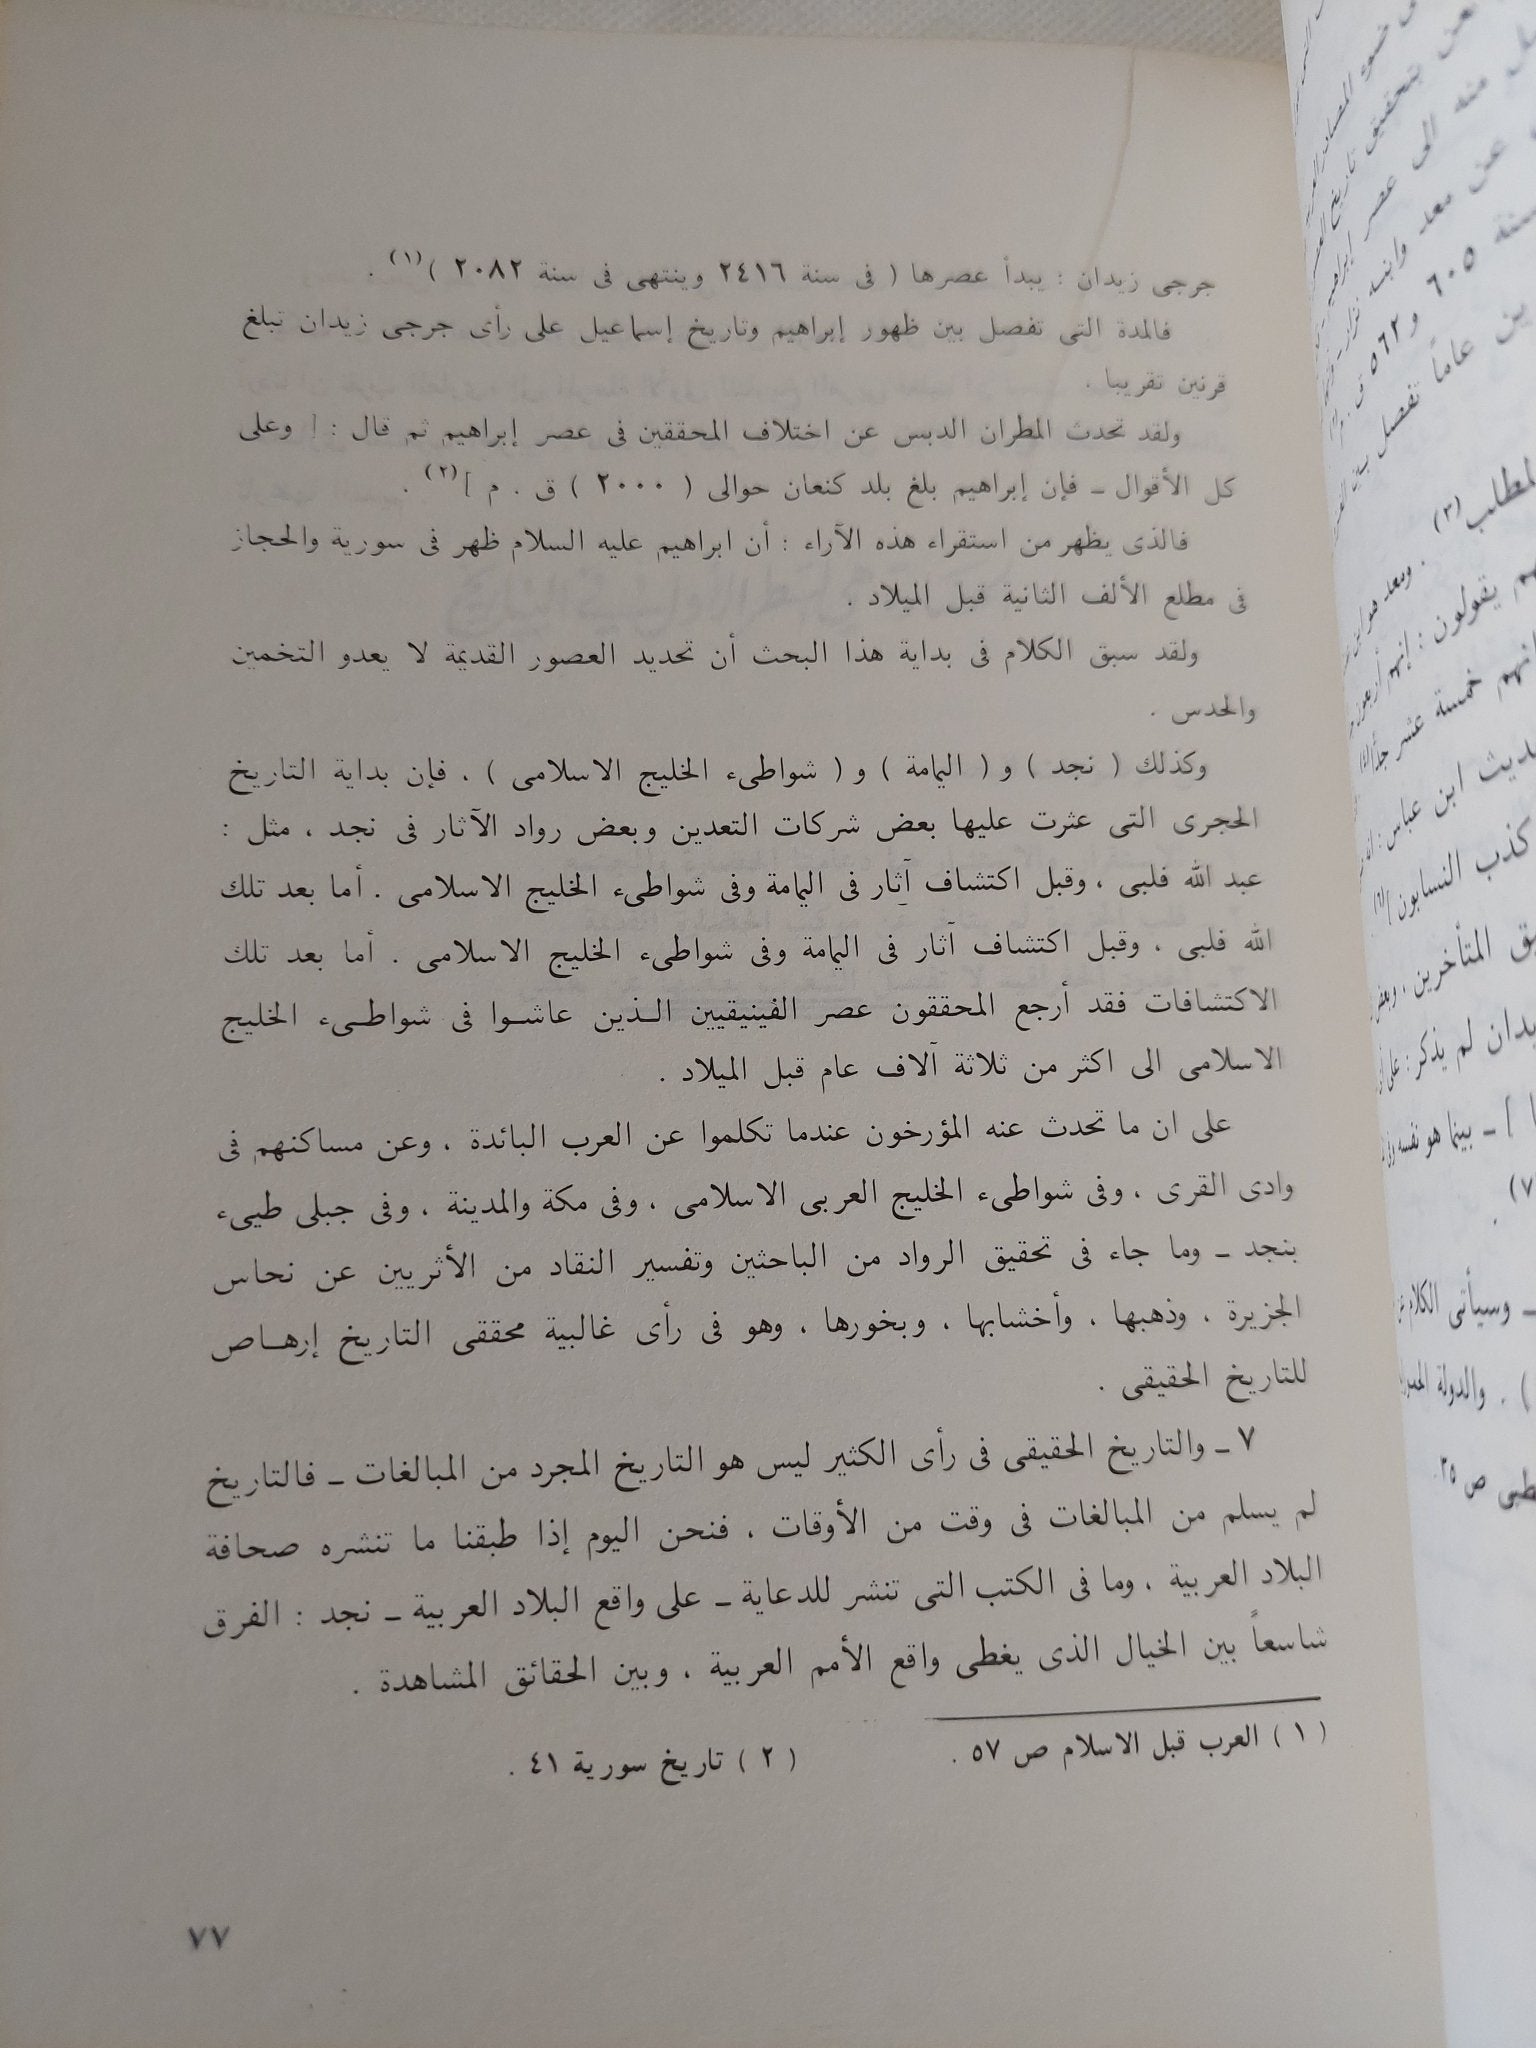 جرجى زيدان : يبدأ عصرها ( فى سنة ٢٤١٦ وينتهى فى سنة ٢٠٨٢ )(١) .
فالمدة التى تفصل بين ظهور إبراهيم وتاريخ إسماعيل على رأى جرجى زيدان تبلغ
قرنين تقريبا .
ولقد تحدث المطران الدبس عن اختلاف المحققين فى عصر إبراهيم ثم قال : [ وعلى
كل الأقوال ــ فإن إبراهيم بلغ بلد كنعان حوالى ( ٢٠٠٠ ) ق . م ](٢) .
فالذى يظهر من استقراء هذه الآراء : أن ابراهيم عليه السلام ظهر فى سورية والحجاز
فى مطلع الألف الثانية قبل الميلاد .
ولقد سبق الكلام فى بداية هذا البحث أن تحديد العصور القديمة لا يعدو التخمين
والحدس .
وكذلك ( نجد ) و ( اليمامة ) و ( شواطىء الخليج الاسلامى ) ، فإن بداية التاريخ
الحجرى التى عثرت عليها بعض شركات التعدين وبعض رواد الآثار فى نجد ، مثل :
عبد الله فلبى ، وقبل اكتشاف آثار فى اليمامة وفى شواطىء الخليج الاسلامى . أما بعد تلك
الله فلبى ، وقبل اكتشاف آثار فى اليمامة وفى شواطىء الخليج الاسلامى . أما بعد تلك
الاكتشافات فقد أرجع المحققون عصر الفينيقيين الـذين عاشـوا فى شواطـىء الخليج
الاسلامى الى اكثر من ثلاثة آلاف عام قبل الميلاد .
على ان ما تحدث عنه المؤرخون عندما تكلموا عن العرب البائدة ، وعن مساكنهم فى
وادى القرى ، وفى شواطىء الخليج العربى الاسلامى ، وفى مكة والمدينة ، وفى جبلى طيىء
بنجد ــ وما جاء فى تحقيق الرواد من الباحثين وتفسير النقاد من الأثريين عن نحاس
الجزيرة ، وذهبها ، وأخشابها ، وبخورها ، وهو فى رأى غالبية محققى التاريخ إرهـاص
للتاريخ الحقيقى .
٧ ــ والتاريخ الحقيقى فى رأى الكثير ليس هو التاريخ المجرد من المبالغات ــ فالتاريخ
لم يسلم من المبالغات فى وقت من الأوقات ، فنحن اليوم إذا طبقنا ما تنشره صحافة
البلاد العربية ، وما فى الكتب التى تنشر للدعاية ــ على واقع البلاد العربية ــ نجد : الفرق
شاسعاً بين الخيال الذى يغطى واقع الأمم العربية ، وبين الحقائق المشاهدة .
( ١ ) العرب قبل الاسلام ص ٥٧ .
( ٢ ) تاريخ سورية ٤١ .
٧٧